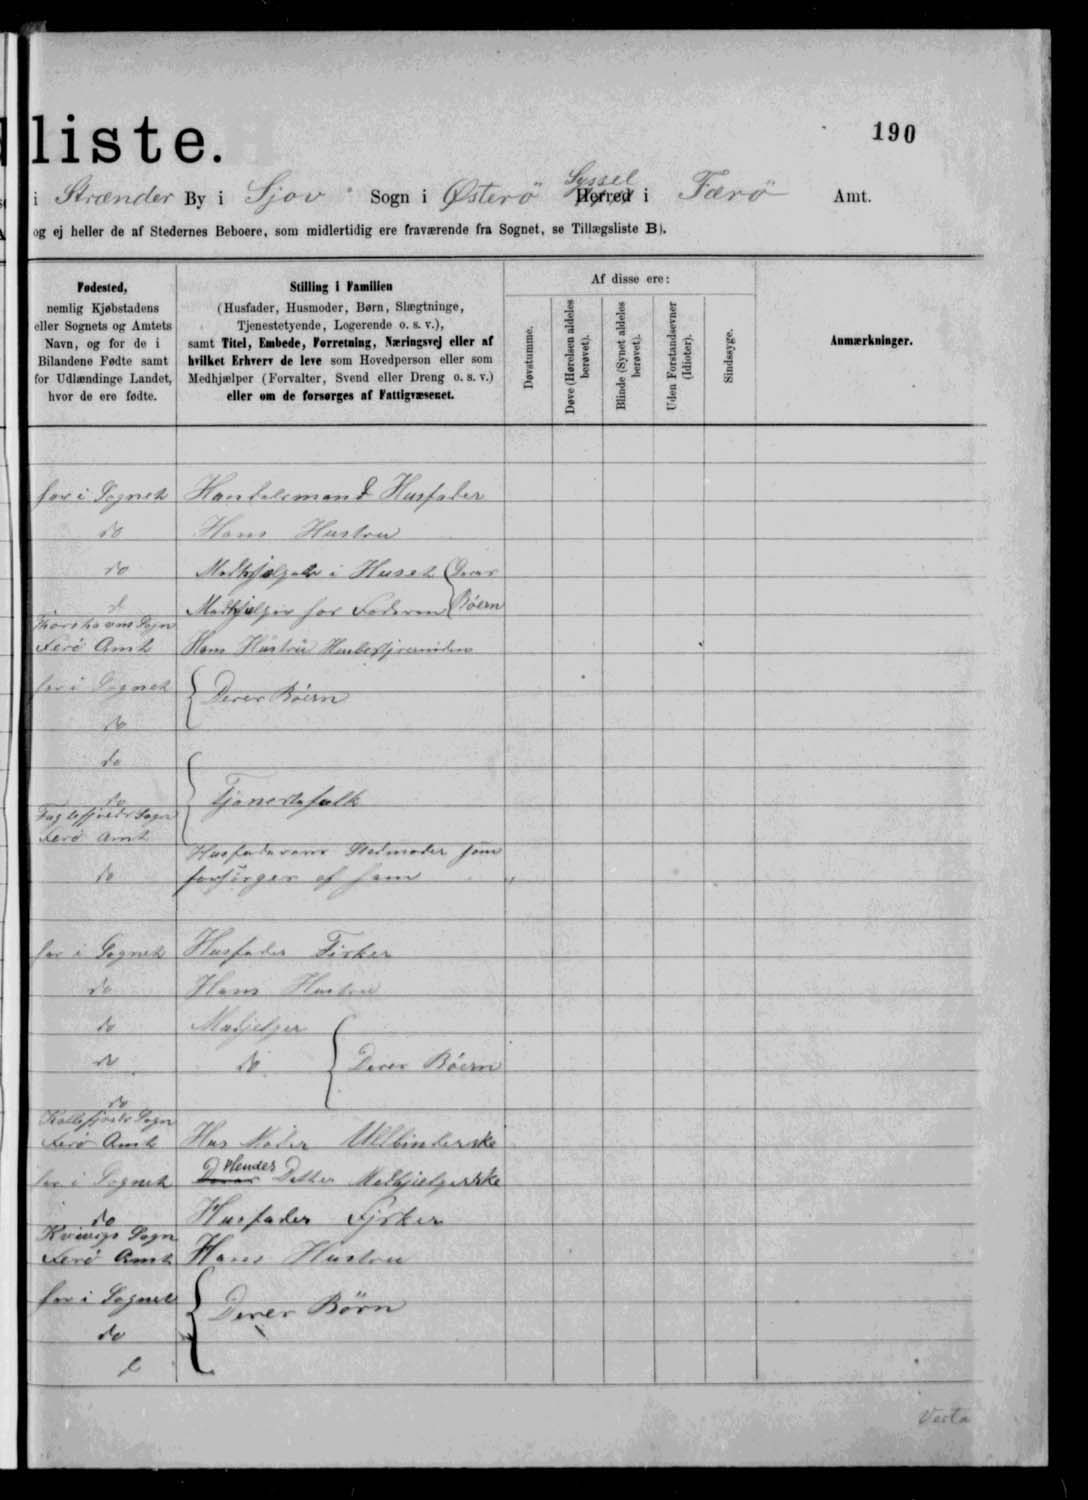 liste.
190
i Strænder By i Sjov Sogn i Østerö Syssel Herred i Færö Amt.
og ej heller de af Stedernes Beboere, som midlertidig ere fraværende fra Sognet, se Tillægsliste B).
Fødested,
nemlig Kjøbstadens
eller Sognets og Amtets
Navn, og for de i
Bilandene Fødte samt
for Udlændinge Landet,
hvor de ere fødte.
Stilling i Familien
(Husfader, Husmoder, Børn, Slægtninge,
Tjenestetyende, Logerende o. s. v.),
samt Titel, Embede, Forretning, Næringsvej eller af
hvilket Erhverv de leve som Hovedperson eller som
Medhjælper (Forvalter, Svend eller Dreng o. s. v.)
eller om de forsørges af Fattigvæsenet.
Af disse ere:
Døvstumme.
Døve (Hørelsen aldeles
berøvet).
Blinde (Synet aldeles
berøvet).
Uden Forstandsevner
(Idioter).
Sindssyge.
Anmærkninger.
her i Sognet Handelsmand Husfader
do Hans Hustru
do i Huset Derer
Medhjelper for Faderen Böern
Thorshavns Sogn
Ferö Amt Hans Hustru
her i Sognet Derer Böern
do
do
do Tjenestefolk
Sogn
Ferö Amt
Husfaderens Stedmoder som
do forsörges af ham
her i Sognet Husfader Fisker
do Hans Hustru
do Medjelper
do do Derer Böern
do
Kollefjords Sogn
Ferö Amt Hus Moder Uldbinderske
her i Sognet Derer Hendes Datter Medhjelperske
do Husfader Fisker
Kvivigs Sogn
Ferö Amt Hans Hustru
her i Sognet Derer Börn
do
Verta